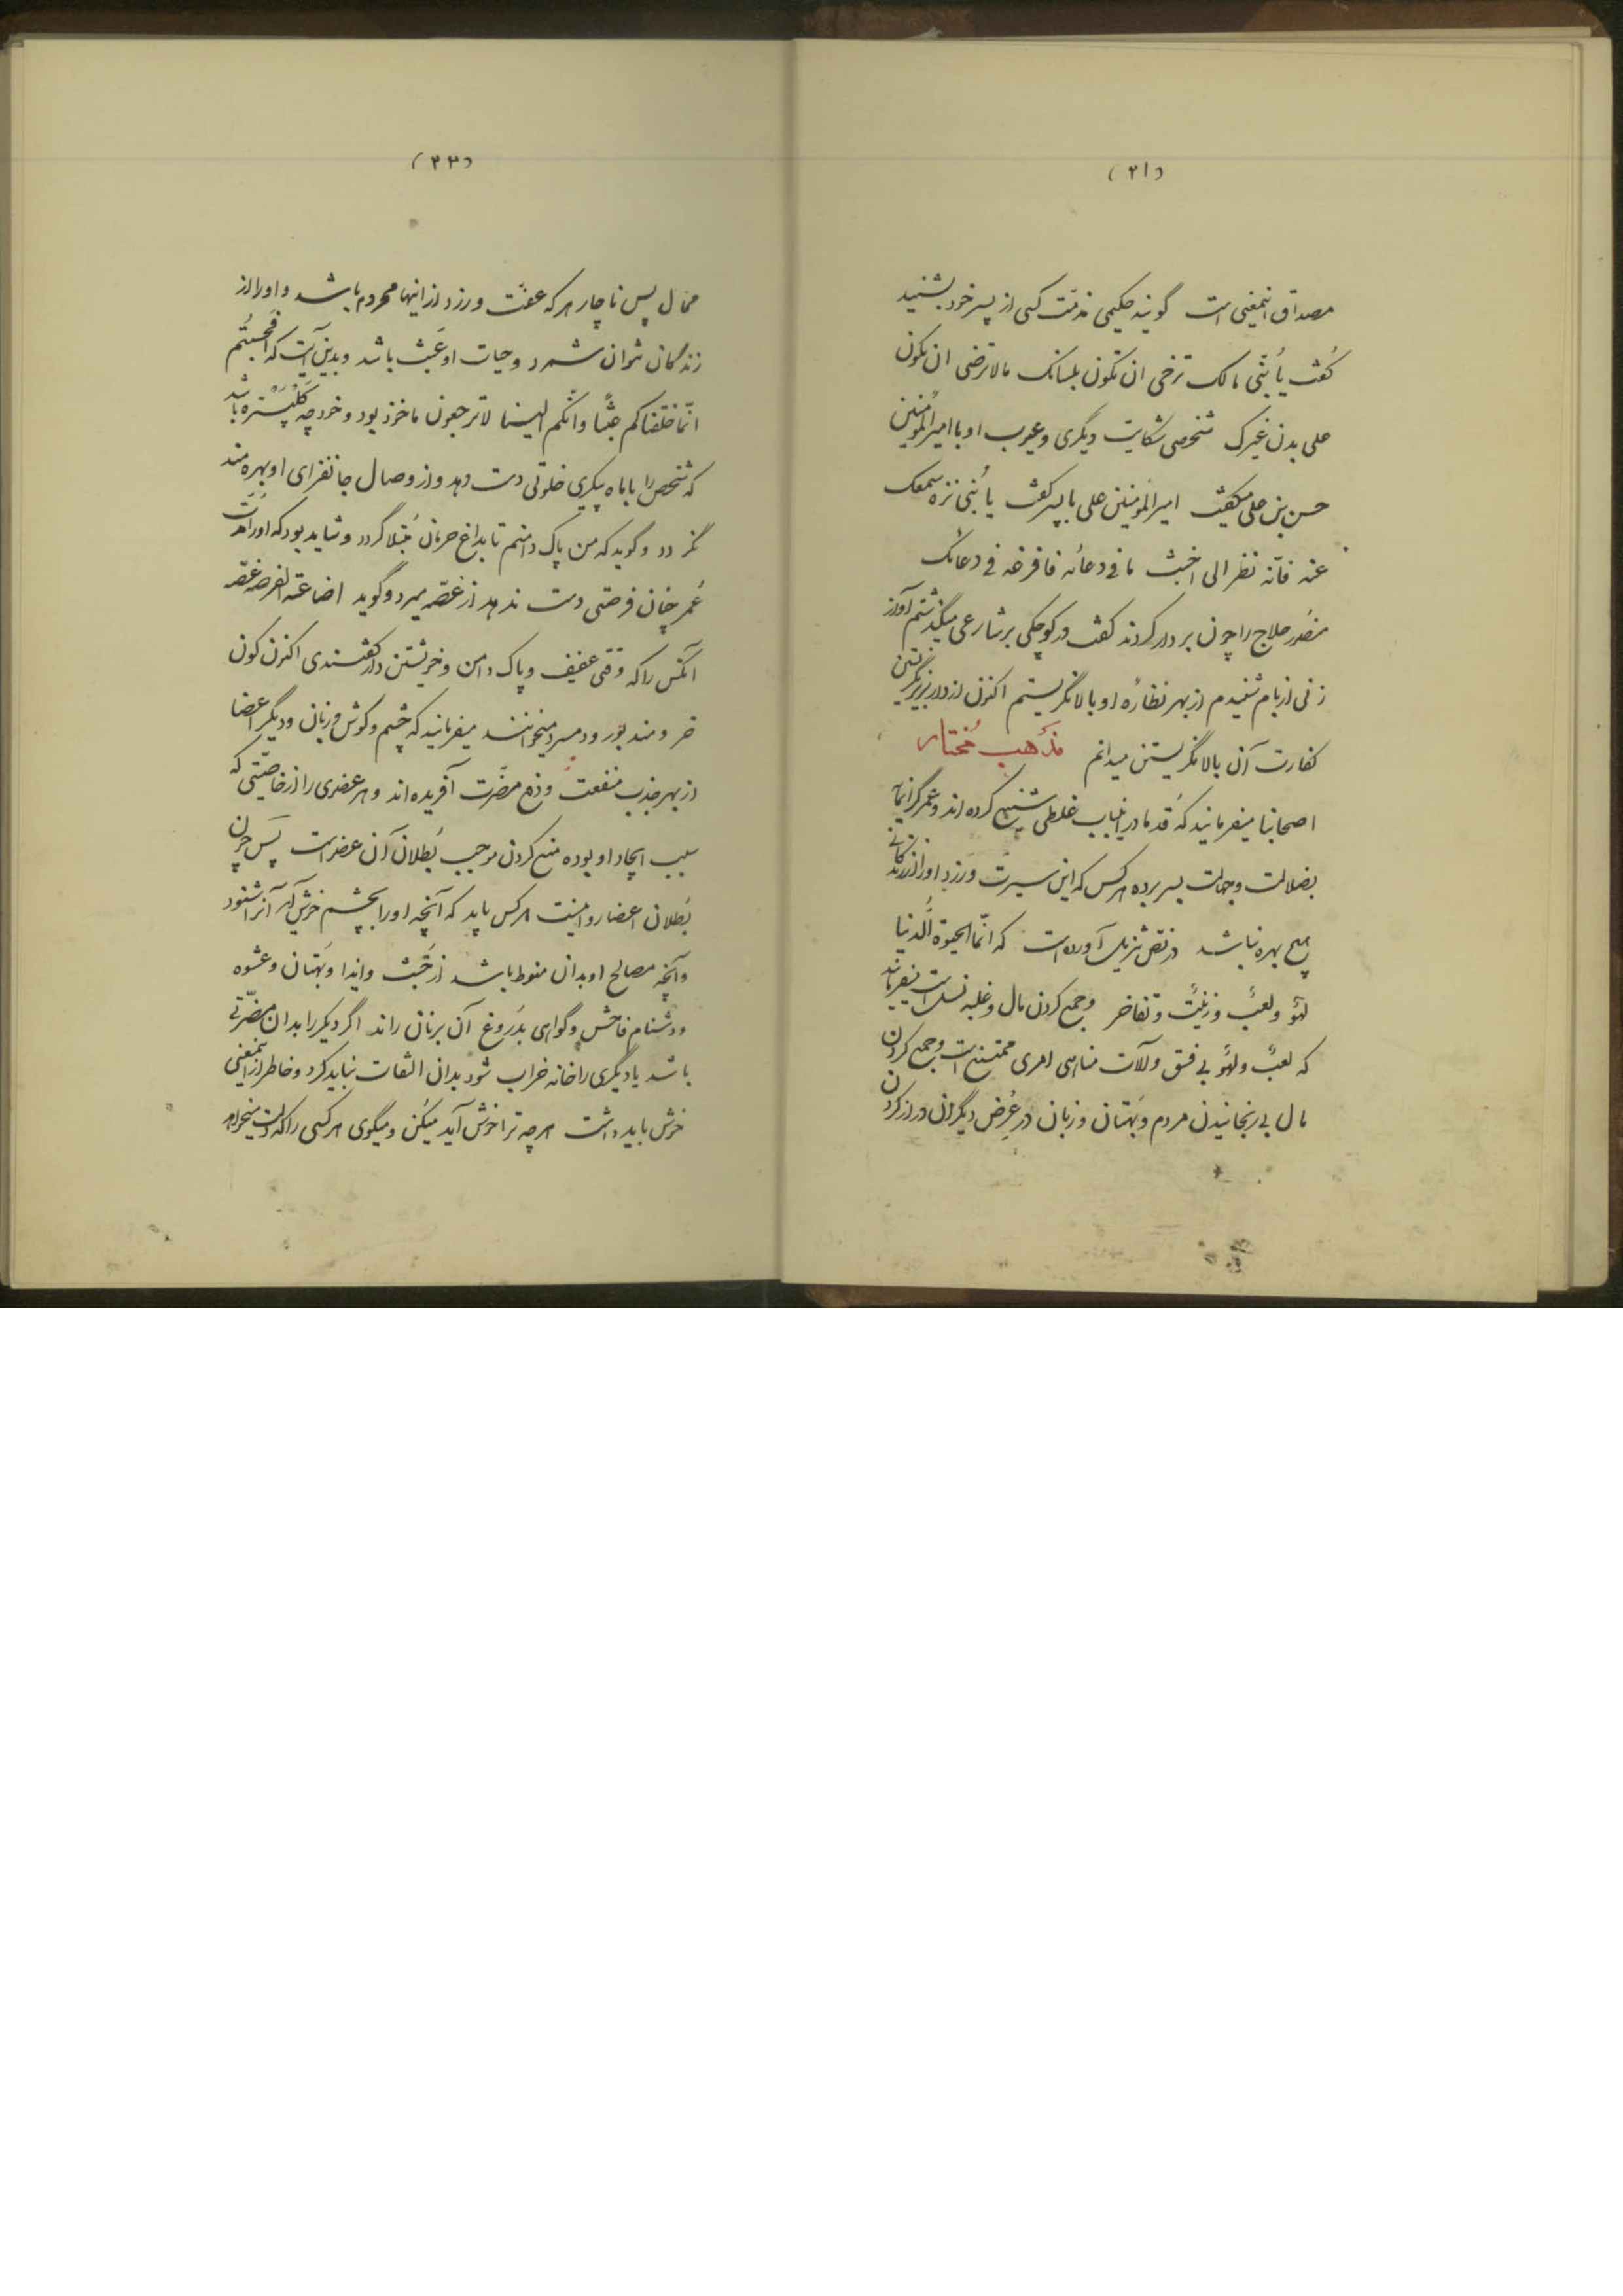 (۲۱)
مصداق اینمعنی است گویند حکیمی مذمت کسی از پسر خود بشنید
گفت یا بُنَّی مالک ترضی ان تکون بلسانک مالاترضی ان یکون
علی بدن غیرک شخصی شکایت دیگری و عیوب او با امیرالمؤمنین
حسن بن علی میگفت امیرالمؤمنین علی با پسر گفت یا بُنَّی نزه سمعک
عنه فانّه نظر الی اخبث ما فی وعائه فافرغه فی وعائک
منصور حلاج را چون بر دار کردند گفت در کوچکی بر شارعی میگذشتم آواز
زنی از بام شنیدم از بهر نظاره او بالا نگریستم اکنون از دار بزیر نگریستن
کفارت آن بالا نگریستن میدانم مذهب مختار
اصحابنا میفرمایند که قدما در این باب غلطی شنیع کرده اند و عمر گرانمایه
بضلالت و جهالت بسر برده هر کس که این سیرت ورزد او را از زندگانی
هیچ بهره نباشد در نص تنزیل آورده است که انّما الحیوة الدُّنیا
لهوٌ ولعبٌ وزینتٌ و تفاخر و جمع کردن مال و غلبه نسل است میفرماید
که لعبٌ و لهوٌ بی فسق و آلات مناهی امری ممتنع است و جمع کردن
مال بی رنجانیدن مردم و بهتان و زبان در عِرض دیگران دراز کردن
(۲۲)
محال پس ناچار هر که عفّت ورزد از اینها محروم باشد و او را از
زندگان نتوان شمرد و حیات او عَبث باشد و بدین آیت که افحسبتُم
انّما خلقناکم عبثًا و انّکم الینا لاترجعون ماخوذ بود و خود چه کلپتره باشد
که شخص را با ماه پیکری خلوتی دست دهد و از وصال جانفزای او بهره مند
نگردد و گوید که من پاک دامنم تا بداغ حرمان مُبتلا گردد و شاید بود که او را مدّت
عُمر چنان فرصتی دست ندهد از غصّه بمیرد و گوید اضاعة الفرصة غصّه
آنکس را که وقتی عفیف و پاک دامن و خویشتن دار گفتندی اکنون کون
خر و مندبور و دمسرد میخوانند میفرمایند که چشم و گوش و زبان و دیگر اعضا
از بهر جذب منفعت و دفع مضرّت آفریده اند و هر عضوی را از خاصیّتی که
سبب ایجاد او بوده منع کردن موجب بُطلان آن عضو است پس چون
بُطلان اعضا روا نیست هر کس باید که آنچه او را بچشم خوش آید آنرا شنود
وآنچه مصالح او بدان منوط باشد از خُبث و ایذا و بُهتان و عشوه
و دشنام فاحش و گواهی بدروغ آن بر زبان راند اگر دیگر را بدان مضرّتی
باشد یا دیگری را خانه خراب شود بدان التفات نباید کرد و خاطر از اینمعنی
خوش باید داشت هر چه ترا خوش آید میکن و میگوی هر کسی را که دلت میخواهد